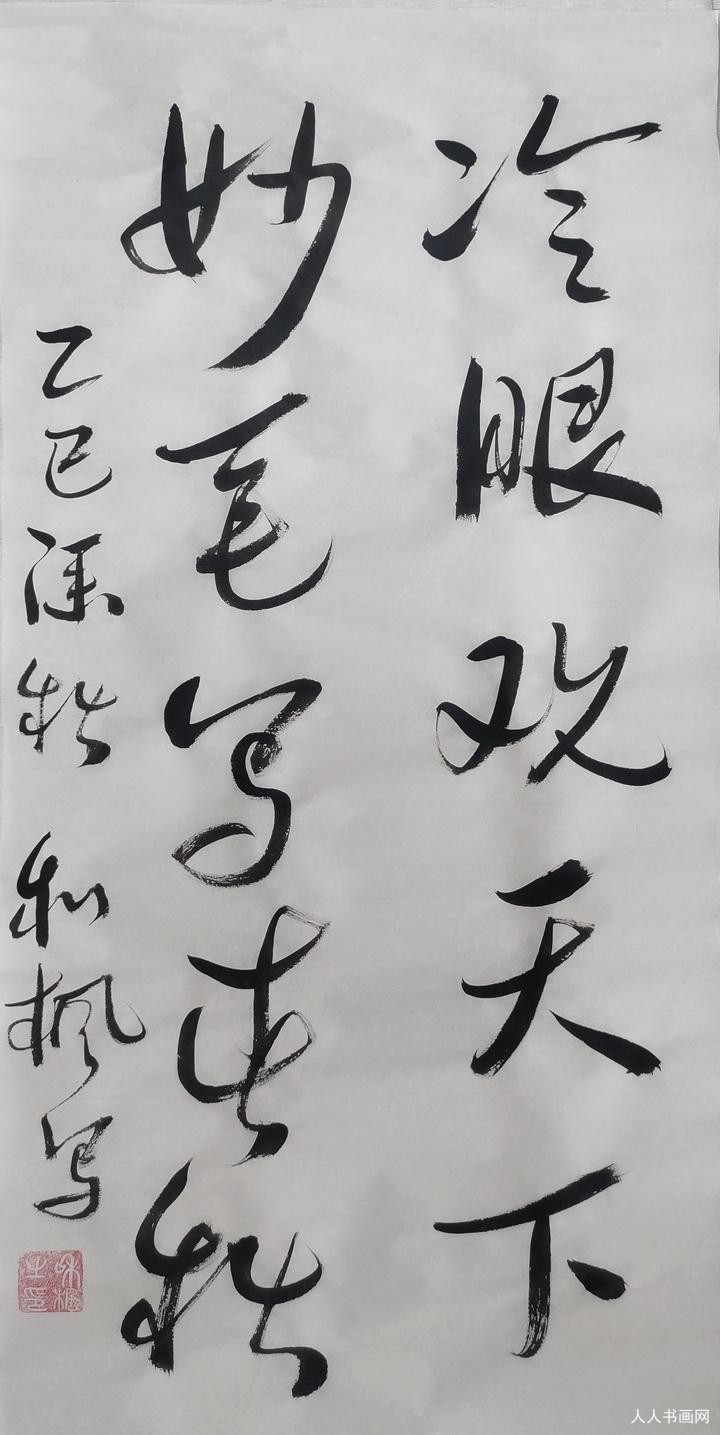 冷眼观天下
妙笔写春秋
乙巳深秋 和枫写
人人书画网